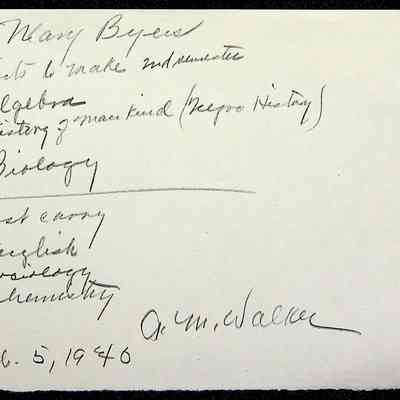 Mary Byers
cts to make 2nd semester
lgebra
istory of mankind (Negro History)
Biology
ust carry
nglish
ociology
hemistry
A. M. Walker
b. 5, 1940